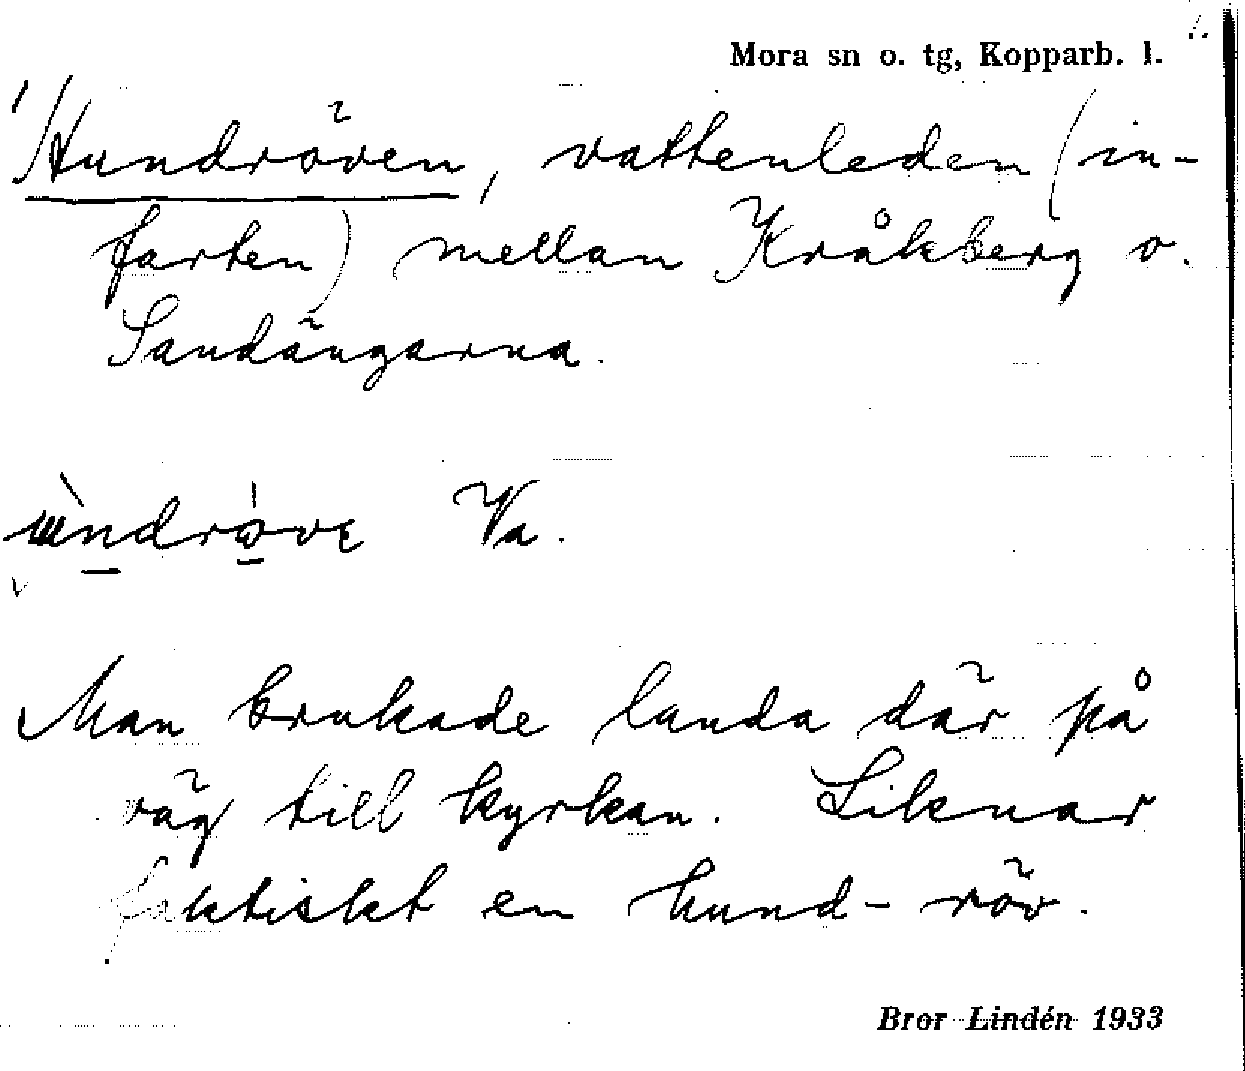 Mora sn o. tg, Kopparb. l.
Hundröven, vattenleden (in-
farten) mellan Kråkberg o.
Sandängarna.
Va.
Man brukade landa där på
väg till kyrkan. Liknar
faktiskt en hund-röv.
Bror Lindén 1933